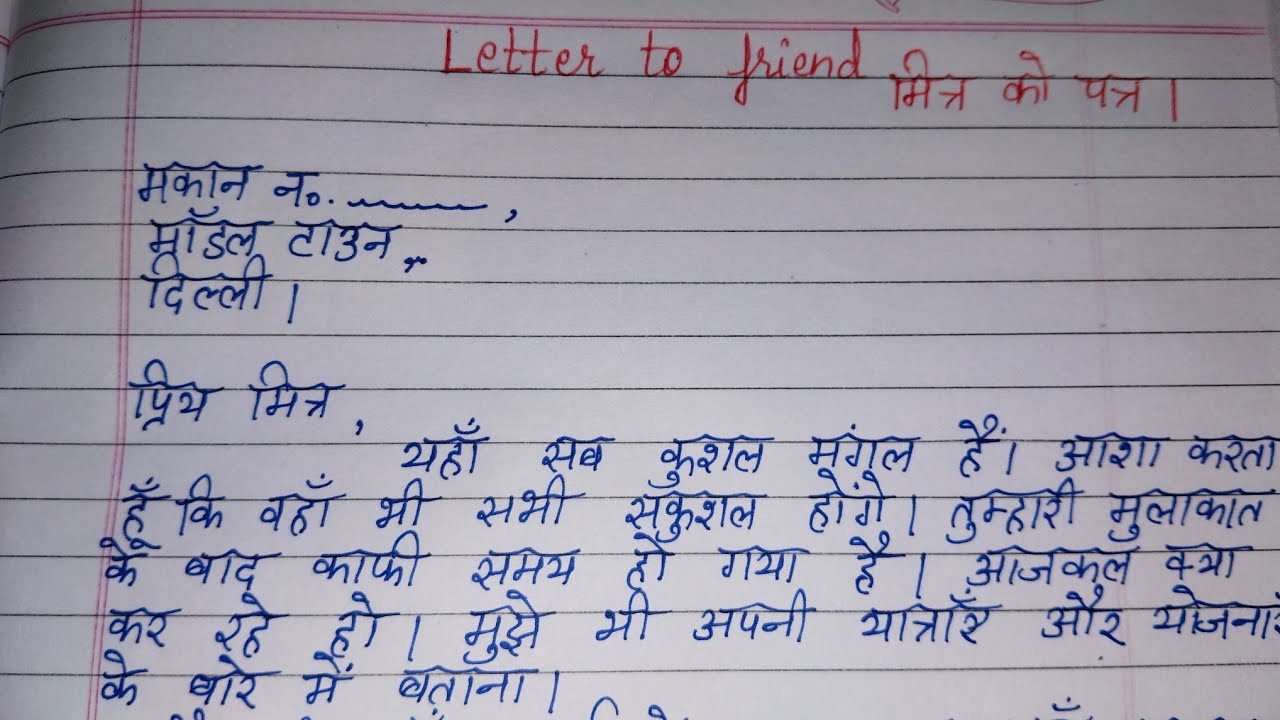 Letter to friend
मित्र को पत्र।
मकान न०. ,
मॉडल टाउन,
दिल्ली।
प्रिय मित्र,
यहाँ सब कुशल मंगल हैं। आशा करता
हूँ कि वहाँ भी सभी सकुशल होंगे। तुम्हारी मुलाकात
के बाद काफी समय हो गया है। आजकल क्या
कर रहे हो। मुझे भी अपनी यात्राएँ और
के बारे में बताना।